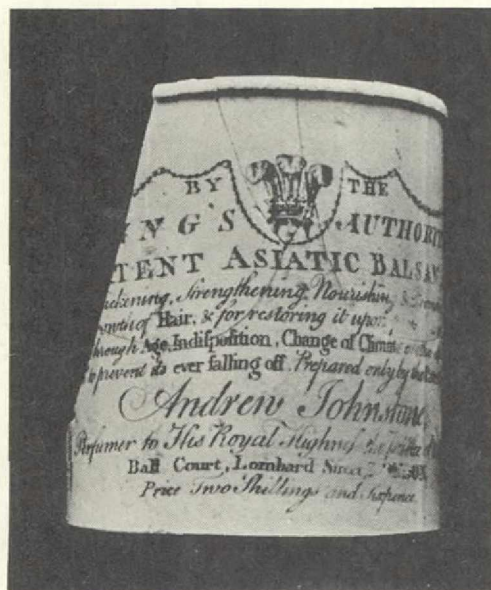 BY THE
NG'S AUTHORIT
TENT ASIATIC BALSAM
ckening, Strengthening, Nourishing &
owth of Hair, & for restoring it upon
hrough Age, Indisposition, Change of Climate
to prevent its ever falling off. Prepared only by the
Andrew Johnstone
Perfumer to His Royal Highness the prince of
Ball Court, Lombard Street
Price Two Shillings and Sixpence